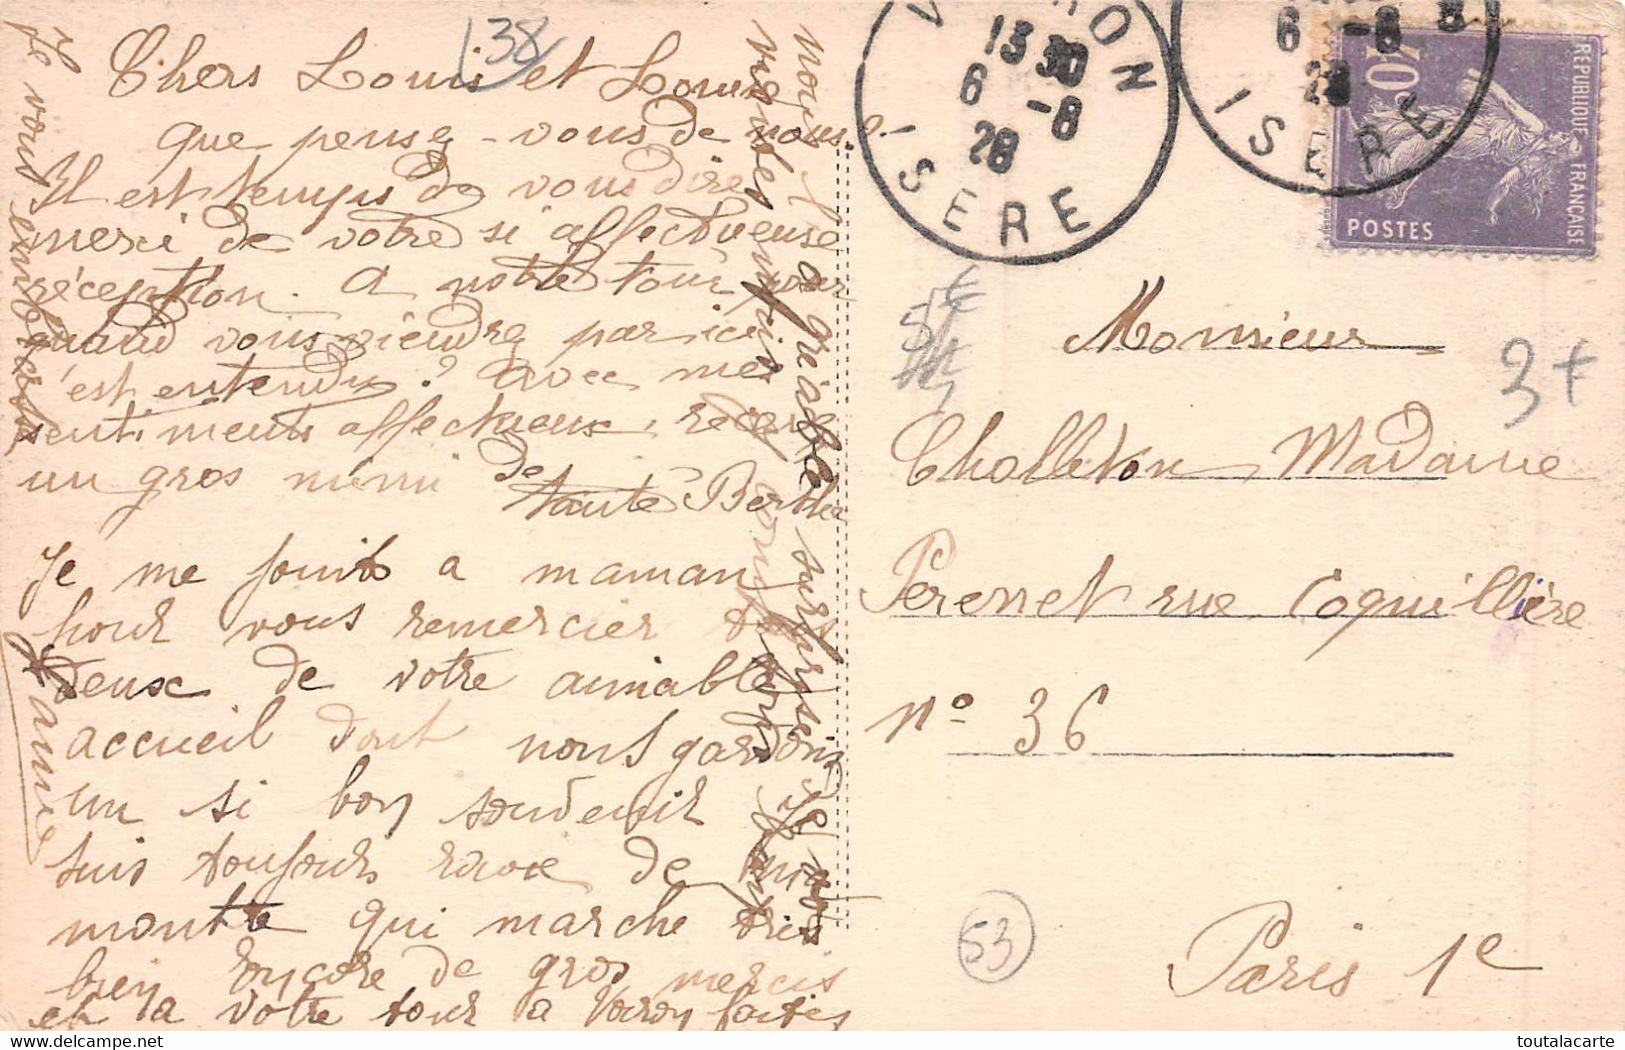 138
Chers Louis et Louise
que pensez-vous de nous?
Il est temps de vous dire
merci de votre si affectueuse
réception. A notre tour pour
quand vous viendrez par ici
c'est entendu? Avec mes
sentiments affectueux, recevez
un gros mimi de
tante Berthe
Je me joint a maman
pour vous remercier tous
deux de votre aimable
accueil dont nous gardons
un si bon souvenir Je
suis toujours ravie de ma
montre qui marche très
bien Encore de gros mercis
et a votre tour a Voiron faites
nous la agréable surprise
Je vous embrasse
Jane
VOIRON
13 30
6 -8
28
ISERE
6 -8
28
ISERE
REPUBLIQUE FRANÇAISE
40c
POSTES
5€
3+
Monsieur
Cholleton Madame
Perenet rue Coquillière
n° 36
53
Paris 1e
toutalacarte